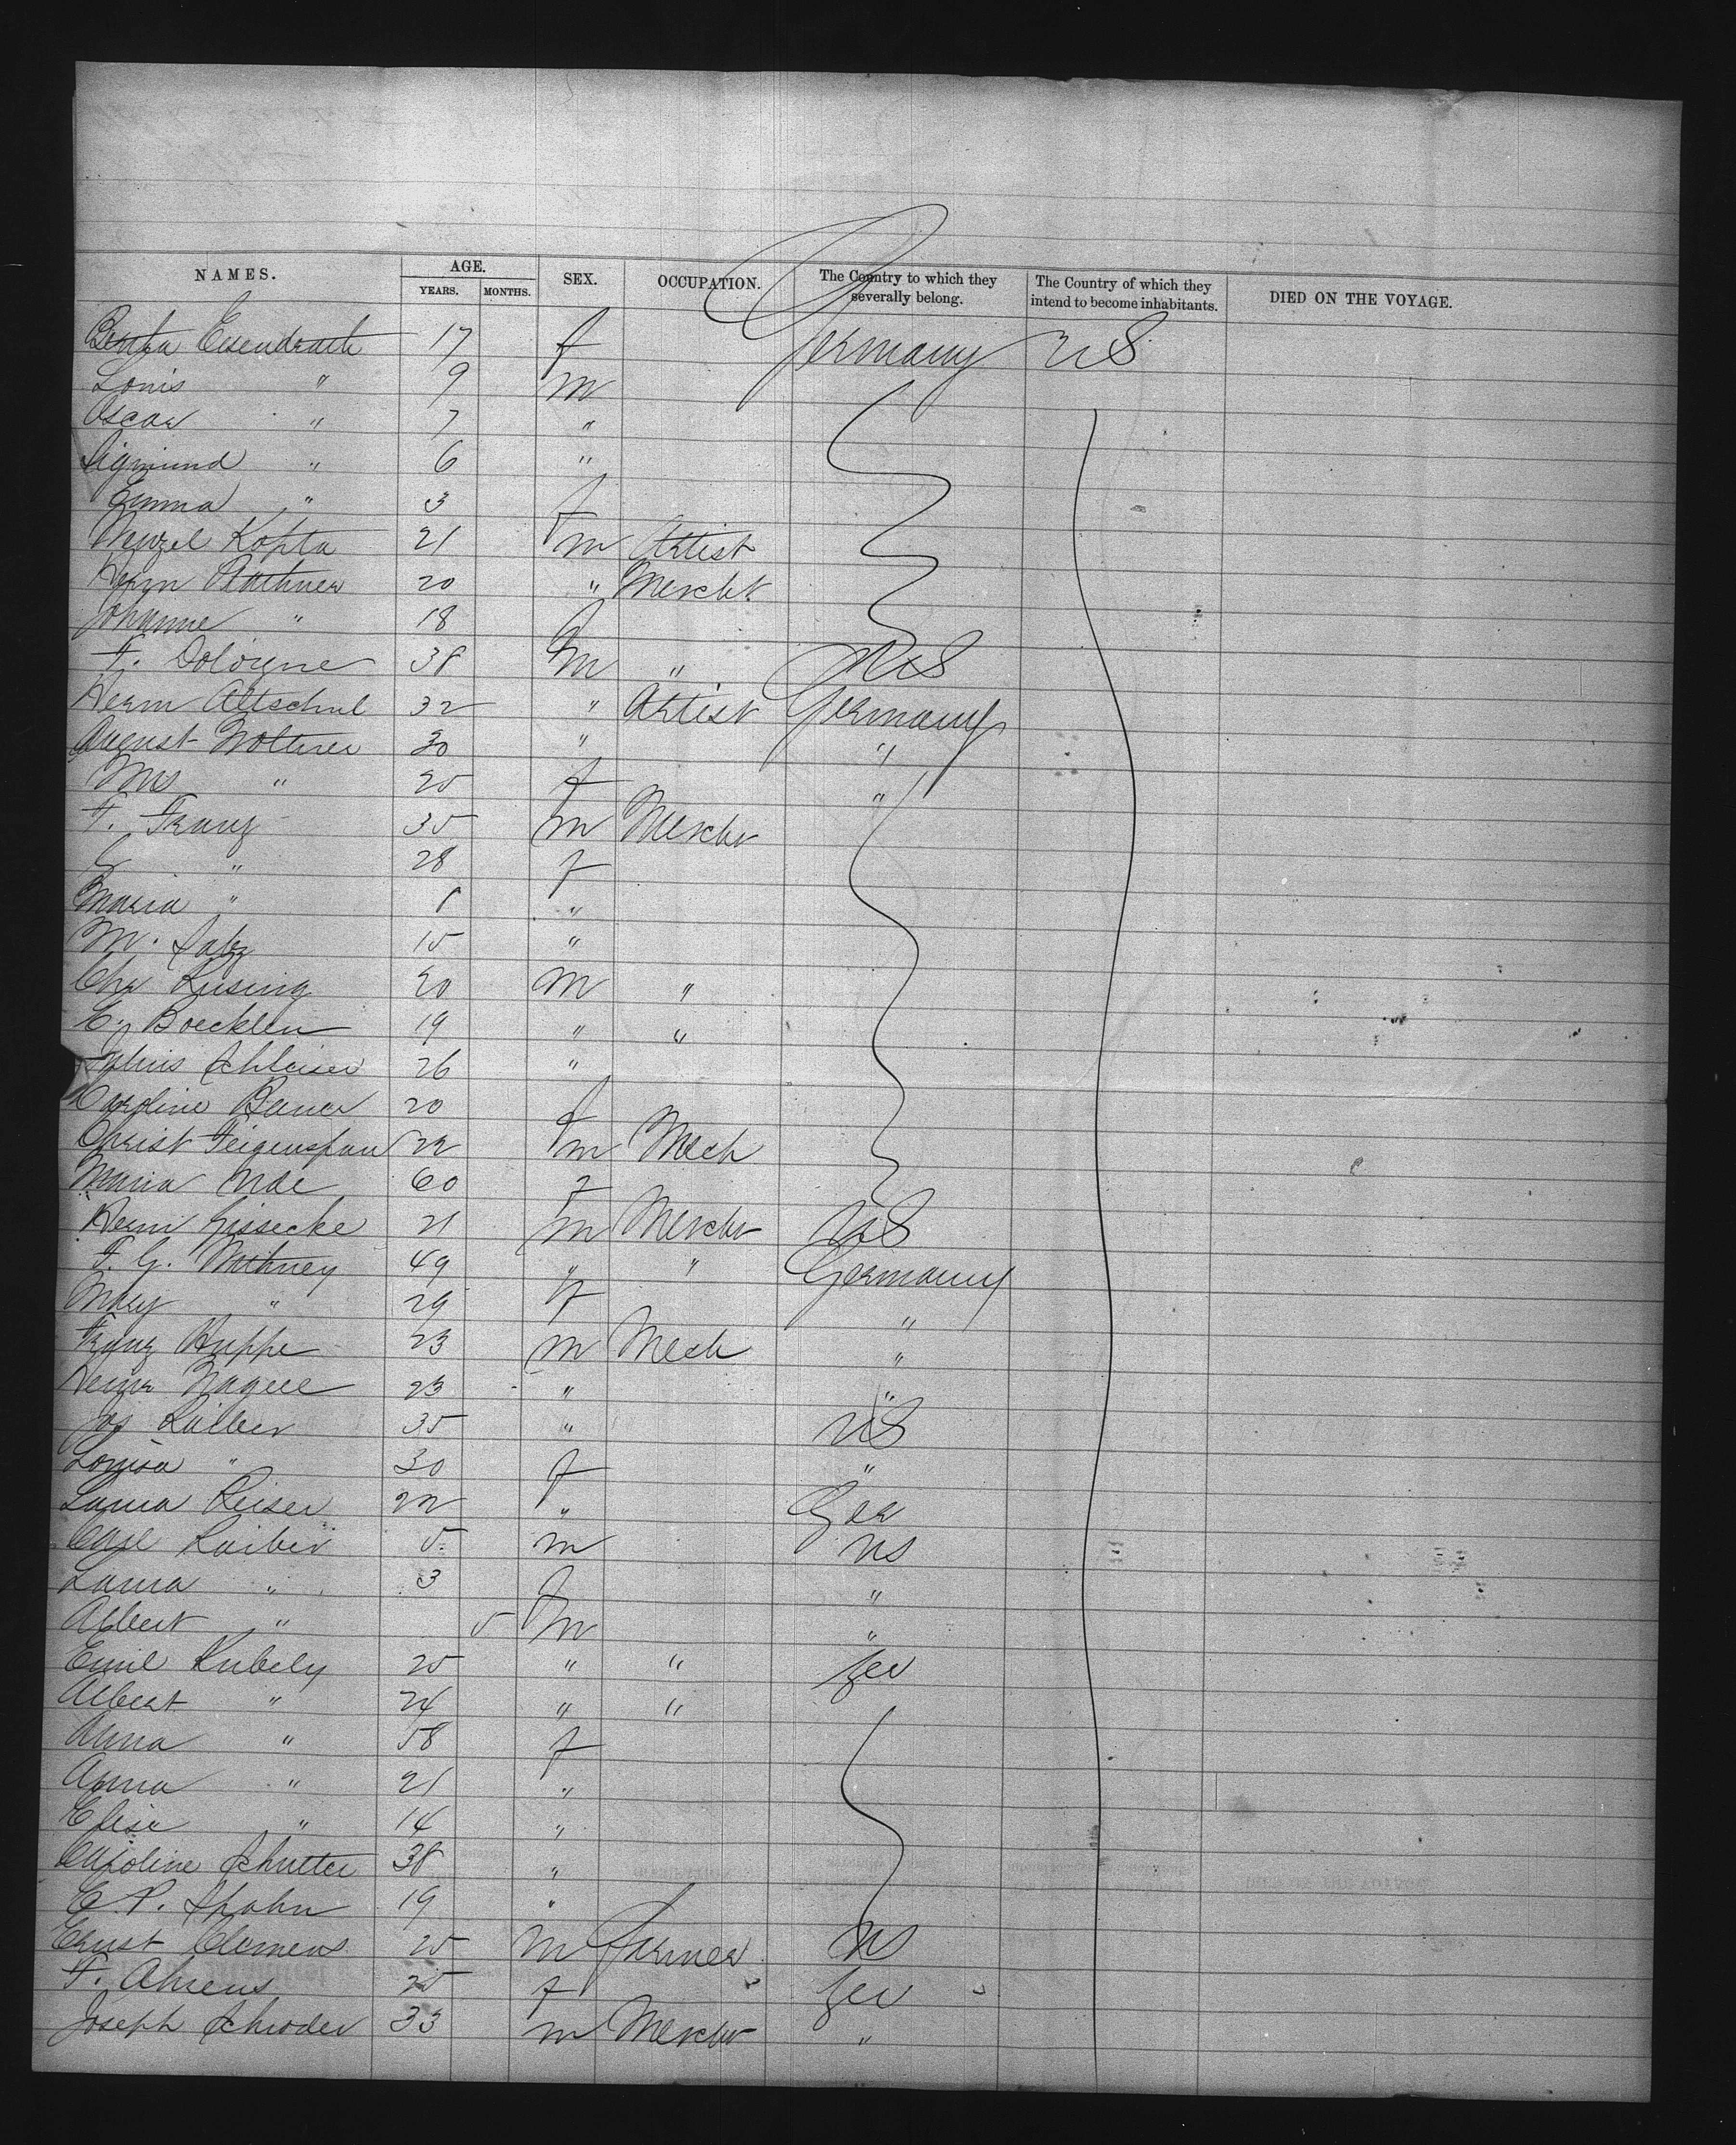 NAMES. AGE. SEX. OCCUPATION. The Country to which they severally belong. The Country of which they intend to become inhabitants. DIED ON THE VOYAGE.
YEARS. MONTHS.
Bertha Eisendrath 17 f Germany US
Louis " 9 m
Oscar " 7 "
Sigmund " 6 "
Emma " 3 f
Wenzel Kopta 21 m Artist
Herm 20 " Mercht
Johanne " 18 f
F. 38 m " US
Herm Altschul 32 " Artist Germany
August 30 " "
Mrs " 25 f "
F. Franz 35 m Mercht
" 28 f
Maria " 8 "
M. Salz 15 "
Chr 20 m "
E. Boecklen 19 " "
Julius 26 "
Caroline Bauer 20 f
Christ Feigenspan 22 m Mech
Maria 60 f
Herm Gissecke 21 m Mercht US
F. G. 49 " " Germany
Mary " 29 f "
Franz Huppe 23 m Mech "
Nagele 23 " "
Jos Laiber 35 " US
Louisa " 30 f "
Laura Reiser 22 " Ger
Carl Laiber 5 m US
Laura " 3 f "
Albert " 5 m "
Emil Kubely 25 " " Ger
Albert " 24 " "
Anna " 58 f
Anna " 21 "
Elise " 14 "
Caroline Schutter 38 "
C. P. Spohn 19 "
Ernst Clemens 25 m Farmer US
F. Ahrens 25 f Ger
Joseph Schroder 33 m Mercht "